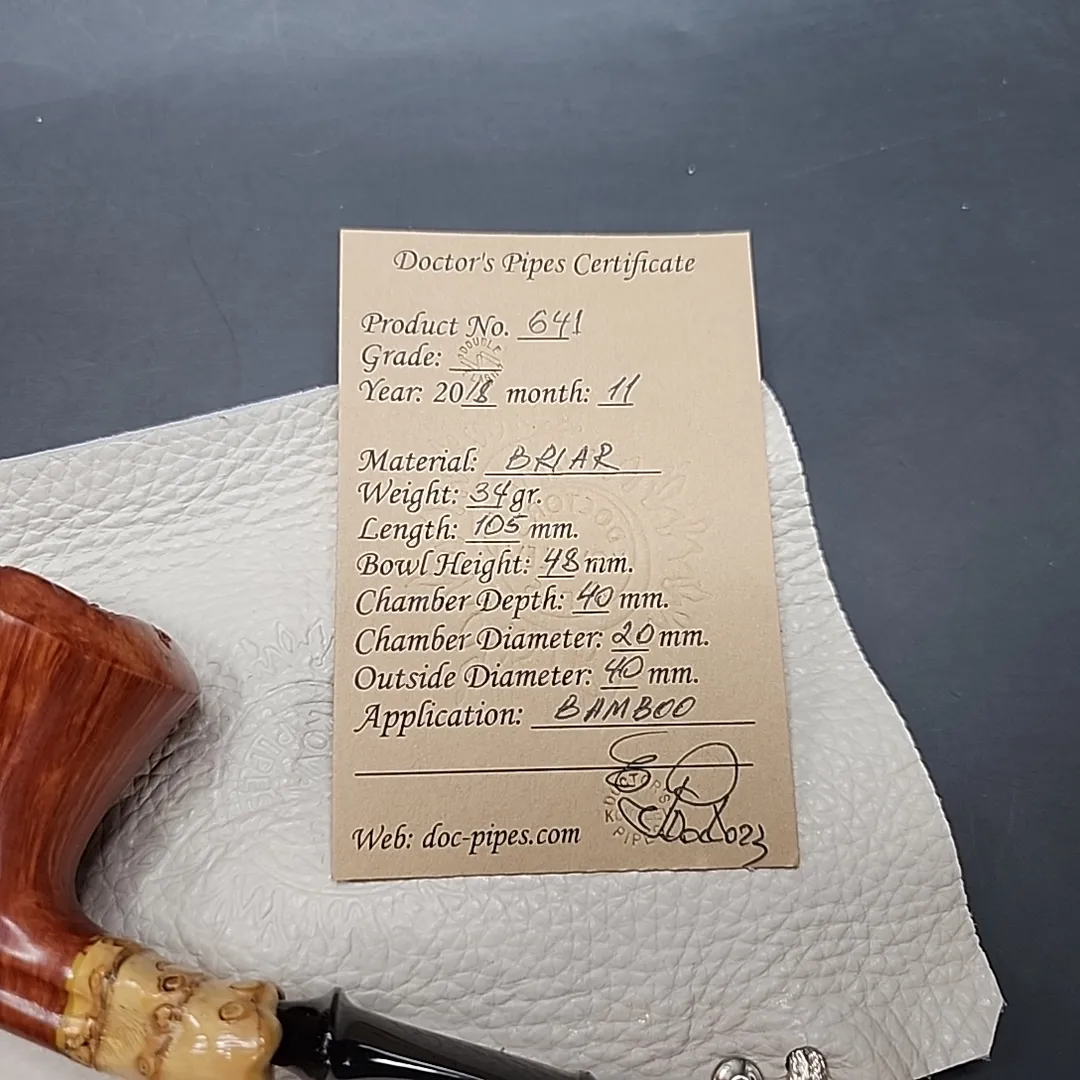 Doctor's Pipes Certificate
Product No. 641
Grade: DOUBLE
Year: 2018 month: 11
Material: BRIAR
Weight: 34 gr.
Length: 105 mm.
Bowl Height: 48 mm.
Chamber Depth: 40 mm.
Chamber Diameter: 20 mm.
Outside Diameter: 40 mm.
Application: BAMBOO
Web: doc-pipes.com